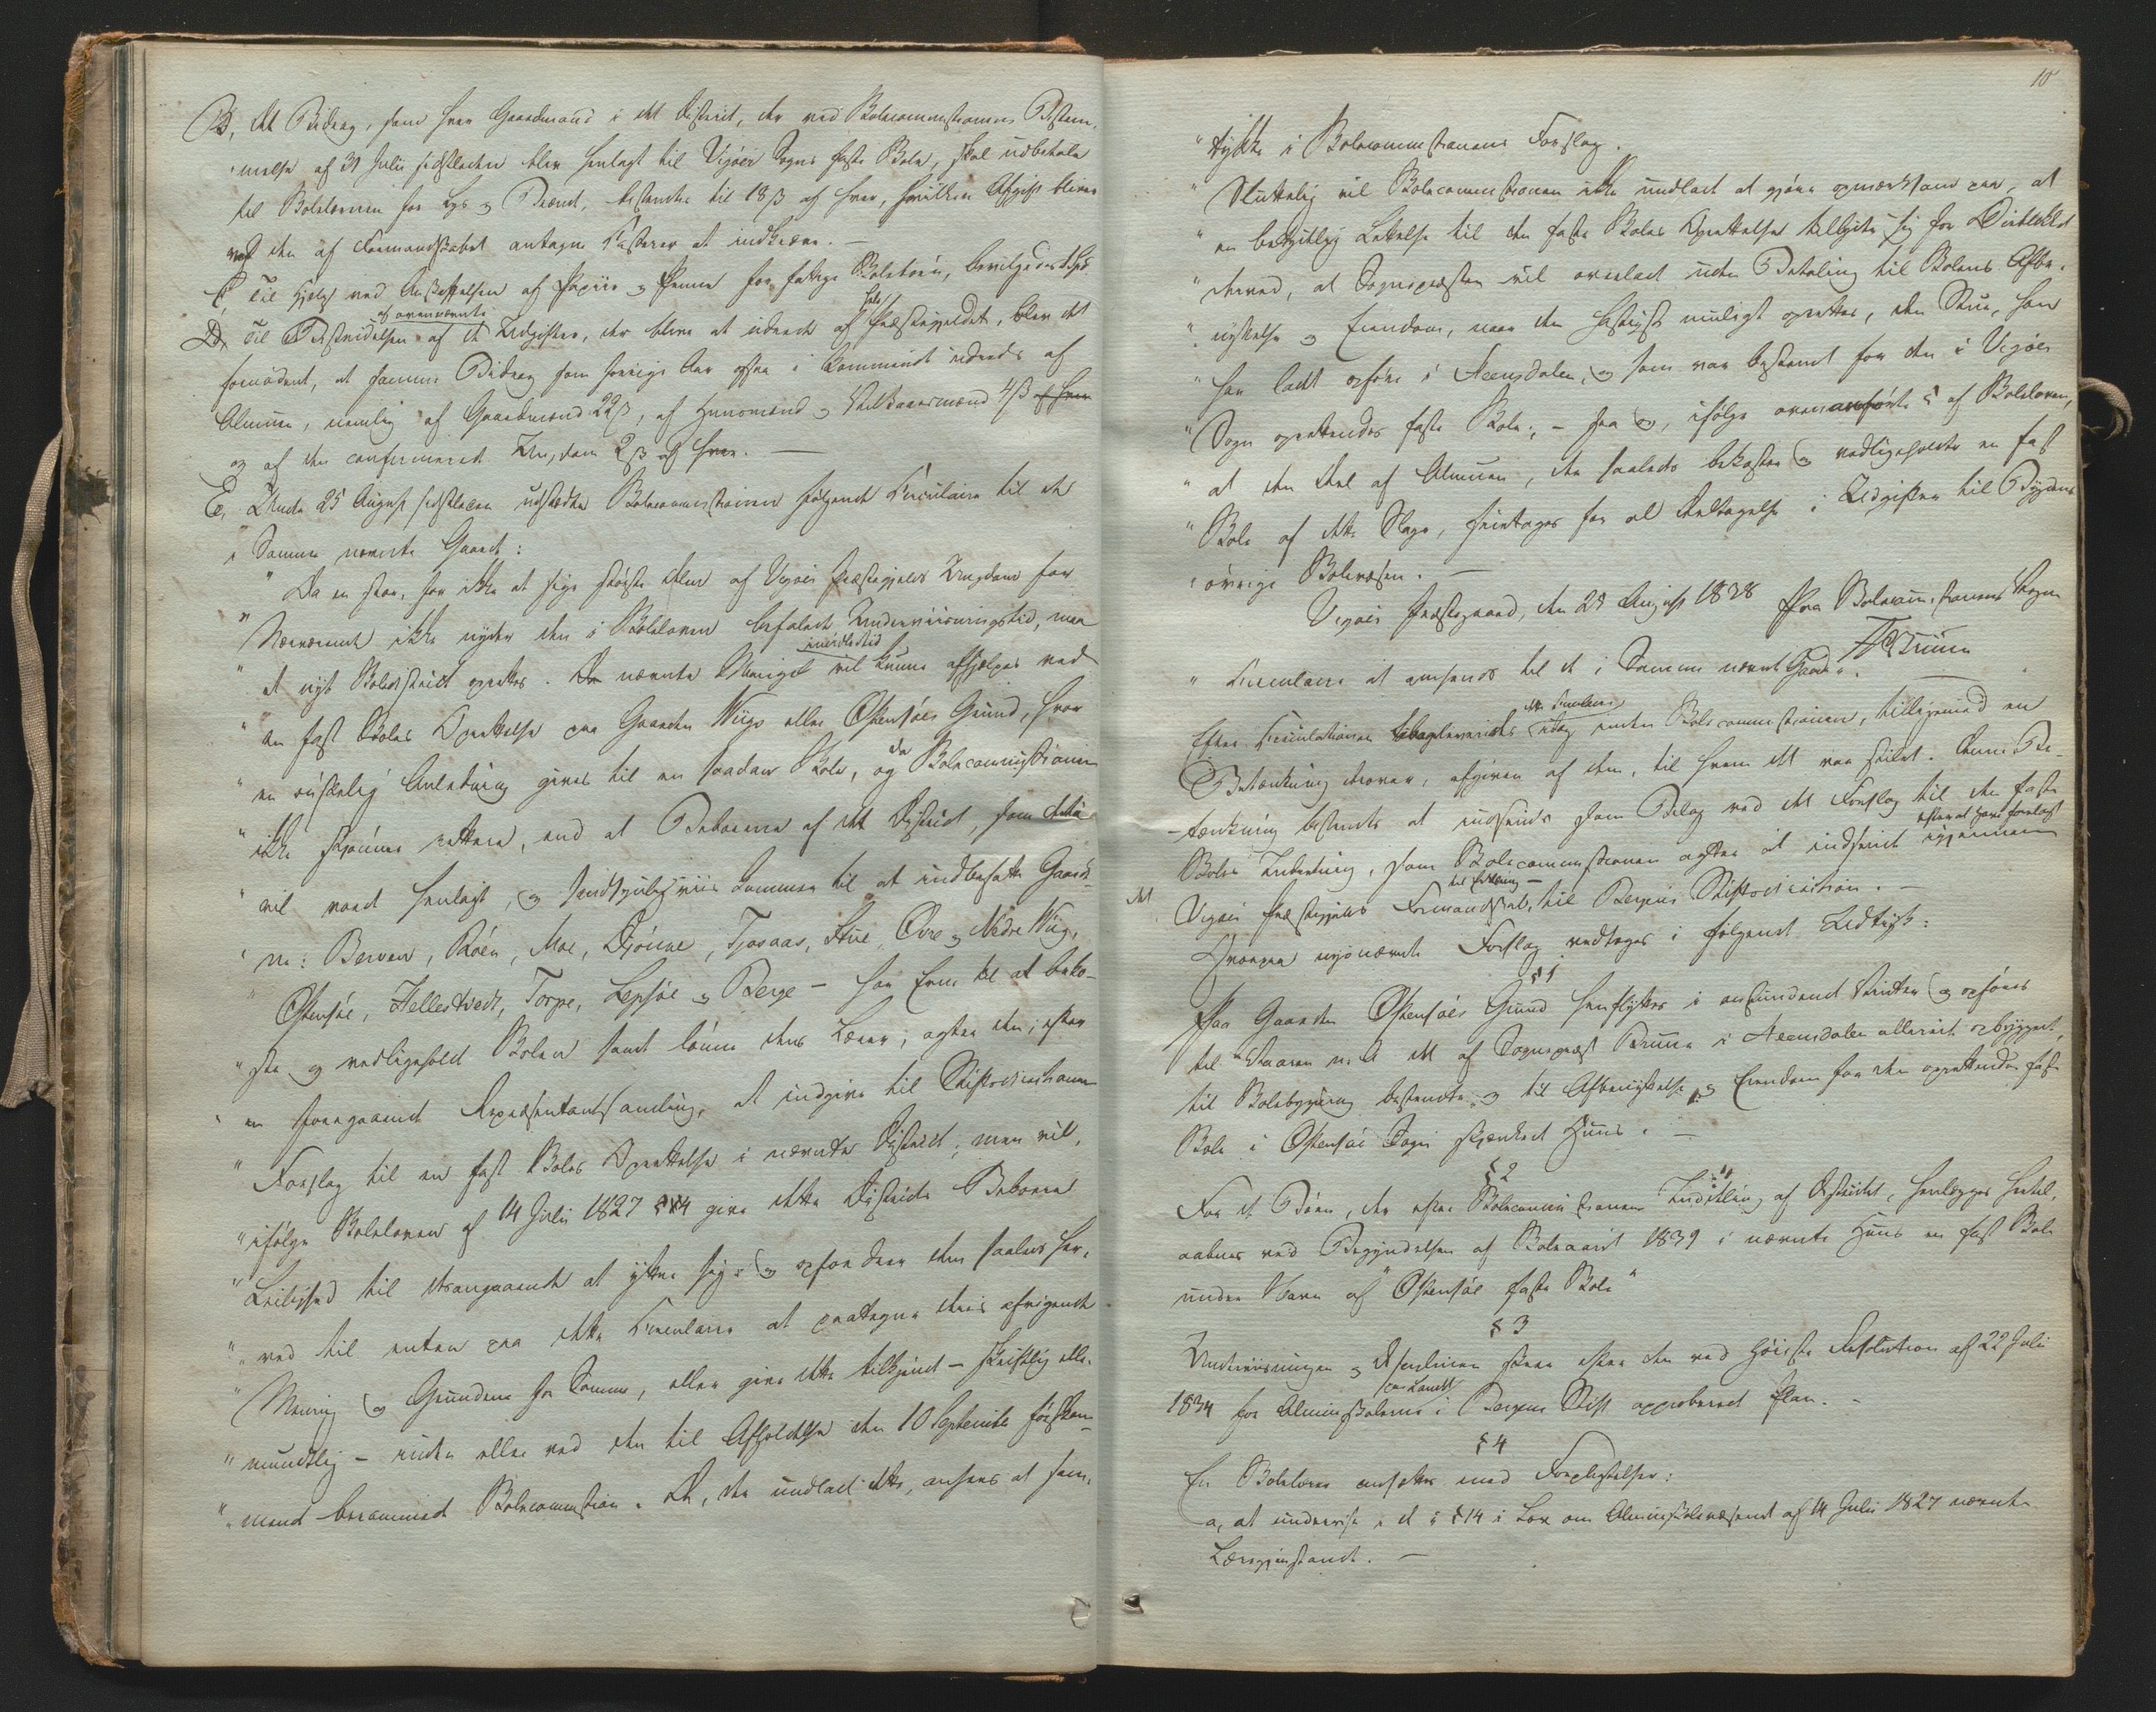 B, Det Bidrag, som hver Gaardmand i det District, der ved Skolecommissionens Bestem-
melse af 31 Julii sidstleden blev henlagt til Vigöers Sogns faste Skole, skal udbetale
til Skolelæreren for Lys og Brænd, bestemtes til 18 ß af hver, hvilken Afgift bliver
ved den af Formandskabet antagne Kasserer at indkræve. —
C, Til Hjelp ved Anskaffelsen af Papiir og Penne for fattige Skolebörn, bevilgedes 1 Spd.
D, Til Bestridelsen af ovennævnte af de Udgifter, der blive at udrede af hele Præstegjeldet, blev det
fornödent, at samme Bidrag som forrige Aar ogsaa i kommende udreds af
Almuen, nemlig af Gaardmænd 22 ß, af Huusmænd og Vilkaarsmænd 4 ß af hver
og af den confirmerede Ungdom 2 ß af hver. —
E, Under 25 August sidstleden udstædte Skolecommissionen fölgende Circulaire til de
i Samme nævnte Gaarde:
" Da en stor, for ikke at sige störste Deel af Vigöers Præstegjelds Ungdom for
" Nærværende ikke nyder den i Skoleloven befalede Underviisningstid, maa
" et nyt Skoledistrict oprettes. De nævnte Mangel imidlertid vil kunne afhjelpes ved
" en fast Skoles Oprettelse paa Gaarden Wiigs eller Östensöes Grund, hvor
" en önskelig Anledning gives til en saadan Skole, og da Skolecommissionen
" ikke skjönner rettere, end at Beboerne af det District, som dertil
" vil vorde henlagt, og sandsynligviis kommer til at indbefatte Gaarde-
" ne: Berven, Röen, Moe, Djönne, Tjosaas, Stue, Övre og Nedre Wiig,
" Östensöe, Hellestvedt, Torpe, Lepsöe og Berge — har Evne til at beko-
" ste og vedligeholde Skolen samt lönne dens Lærer; agter den, efter
" en foregaaende Repræsentantsamling, at indgive til Stiftsdirectionen
" Forslag til en fast Skoles Oprettelse i nævnte District; men vil,
" ifölge Skoleloven af 14 Julii 1827 § 4 give dette Districts Beboere
" Leilighed til desangaaende at yttre sig; og opfordrer dem saaledes her-
" ved til enten paa dette Circulaire at paategne deres afvigende
" Mening og Grundene for Samme, eller give dette tilkjende — skriftlig eller
" mundtlig — inden eller ved den til Afholdelse den 10 Septembr förstkom-
" mende berammede Skolecommission. De, der undlade dette, ansees at sam-
10
" tykke i Skolecommissionens Forslag.
" Sluttelig vil Skolecommissionen ikke undlade at gjöre opmærksom paa, at
" en betydelig Lettelse til den faste Skoles Oprettelse tilbyder sig for Districtet
" derved, at Sognepræsten vil overlade uden Betaling til Skolens Afbe-
" nyttelse og Eiendom, naar den hastigst muligt oprettes, den Stue, han
" har ladet opföre i Steensdalen, og som var bestemt for den i Vigöer
" Sogn oprettendes faste Skole; — saa og, ifölge ovenanförte § af Skoleloven,
" at den Deel af Almuen, der saaledes bekoster og vedligeholder en fast
" Skole af dette Slags, fritages for al Deltagelse i Udgifter til Bygdens
" övrige Skolevæsen. —
Vigöer Præstegaard, den 25 August 1838 Paa Skolecommissionens Vegne
Bruun
" Circulaire at omsendes til de i Samme nævnte Gaarde". —
Efter Circulationen tilbageleveredes dette Circulaire idag under Skolecommissionen, tilligemed en
Betænkning derover, afgiven af dem, til hvem det var stilet. Denne Be-
tænkning bestemtes at indsendes som Bilag ved det Forslag til den faste
Skoles Indretning, som Skolecommissionen agter at indsende igjennem efter at have forelagt
det Vigöer Præstegjelds Formandskab, til Erklæring — til Bergens Stiftsdirection. —
Hvorpaa nysnævnte Forslag vedtoges i fölgende Udtryk:
§ 1
Paa Gaarden Östensöes Grund henflyttes i anstundende Vinter og opföres
til Vaaren n. A. det af Sognepræst Bruun i Steensdalen allerede opbyggede,
til Skolebygning bestemte, og til Afbenyttelse og Eiendom for den oprettende faste
Skole i Östensöe Sogn skjenkede Huus. —
§ 2
For de Börn, der efter Skolecommissionens Inddeling af Districtet, henlægges hertil,
aabnes ved Begyndelsen af Skoleaaret 1839 i nævnte Huus en fast Skole
under Navn af "Östensöe faste Skole"
§ 3
Underviisningen og Disciplinen skeer efter den ved höieste Resolution af 22 Juli
1834 for Almueskolerne paa Landet i Bergens Stift approberede Plan. —
§ 4
En Skolelærer ansættes med Forpligtelse:
a, at undervise i de i § 14 i Lov om Almueskolevæsenet af 14 Julii 1827 nævnte
Læregjenstande. —